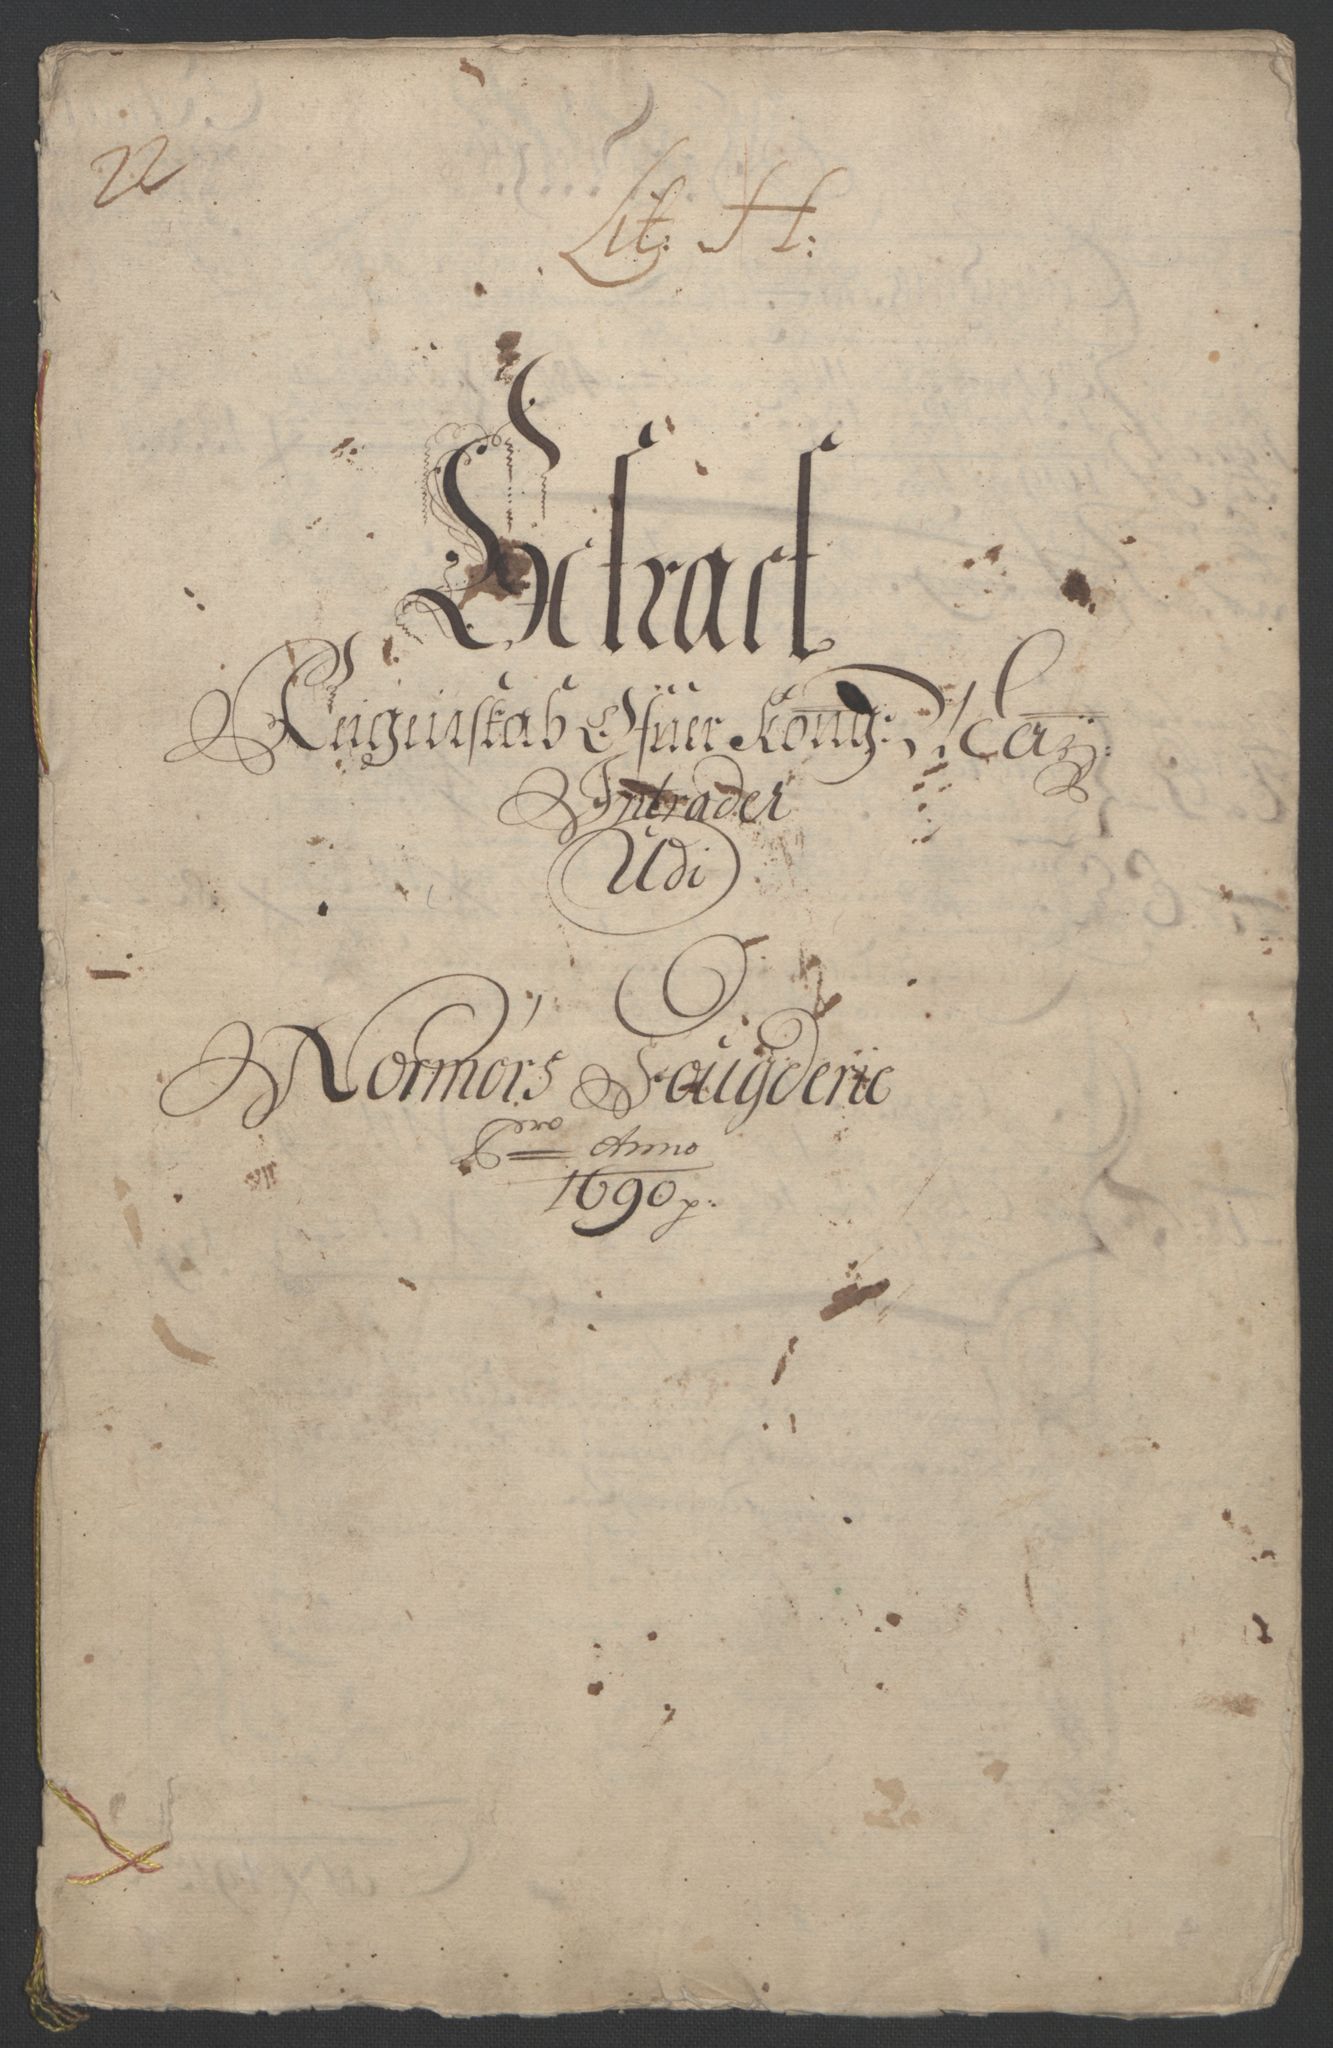 22
Lit: H:
Extract
Regenskab Ofuer Kong: May:
Intrader
Udi
Normørs Fougderie
Pro Anno
1690